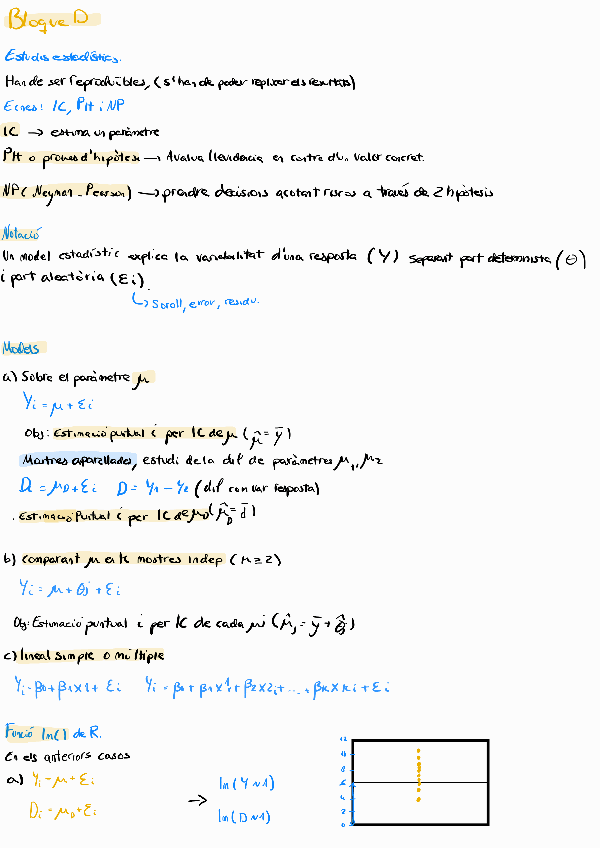 Bloque D
Estudis estadístics.
Han de ser reproduïbles, (s'han de poder replicar els resultats)
Eines: IC, PH i NP
IC → estima un paràmetre
PH o proves d'hipòtesi → Avalua l'evidència en contra d'un valor concret.
NP (Neyman-Pearson) → prendre decisions acotant riscos a través de 2 hipòtesis
Notació
Un model estadístic explica la variabilitat d'una resposta (Y) separant part determinista (Θ)
i part aleatòria (εi).
↳ Soroll, error, residu.
Models
a) Sobre el paràmetre μ
Yi = μ + εi
Obj: Estimació puntual i per IC de μ (μ̂ = ȳ)
Mostres aparellades, estudi de la dif de paràmetres μ1, μ2
Di = μD + εi D = Y1 - Y2 (dif com var resposta)
. Estimació Puntual i per IC de μD (μ̂D = d̄)
b) Comparant μ en k mostres indep (k ≥ 2)
Yi = μ + θj + εi
Obj: Estimació puntual i per IC de cada μj (μ̂j = ȳ + θ̂j)
c) lineal simple o múltiple
Yi = β0 + β1X1 + εi Yi = β0 + β1X1i + β2X2i + ... + βkXki + εi
Funció lm() de R.
En els anteriors casos
a) Yi = μ + εi
Di = μD + εi
→
lm(Y~1)
lm(D~1)
12
8
6
4
2
0